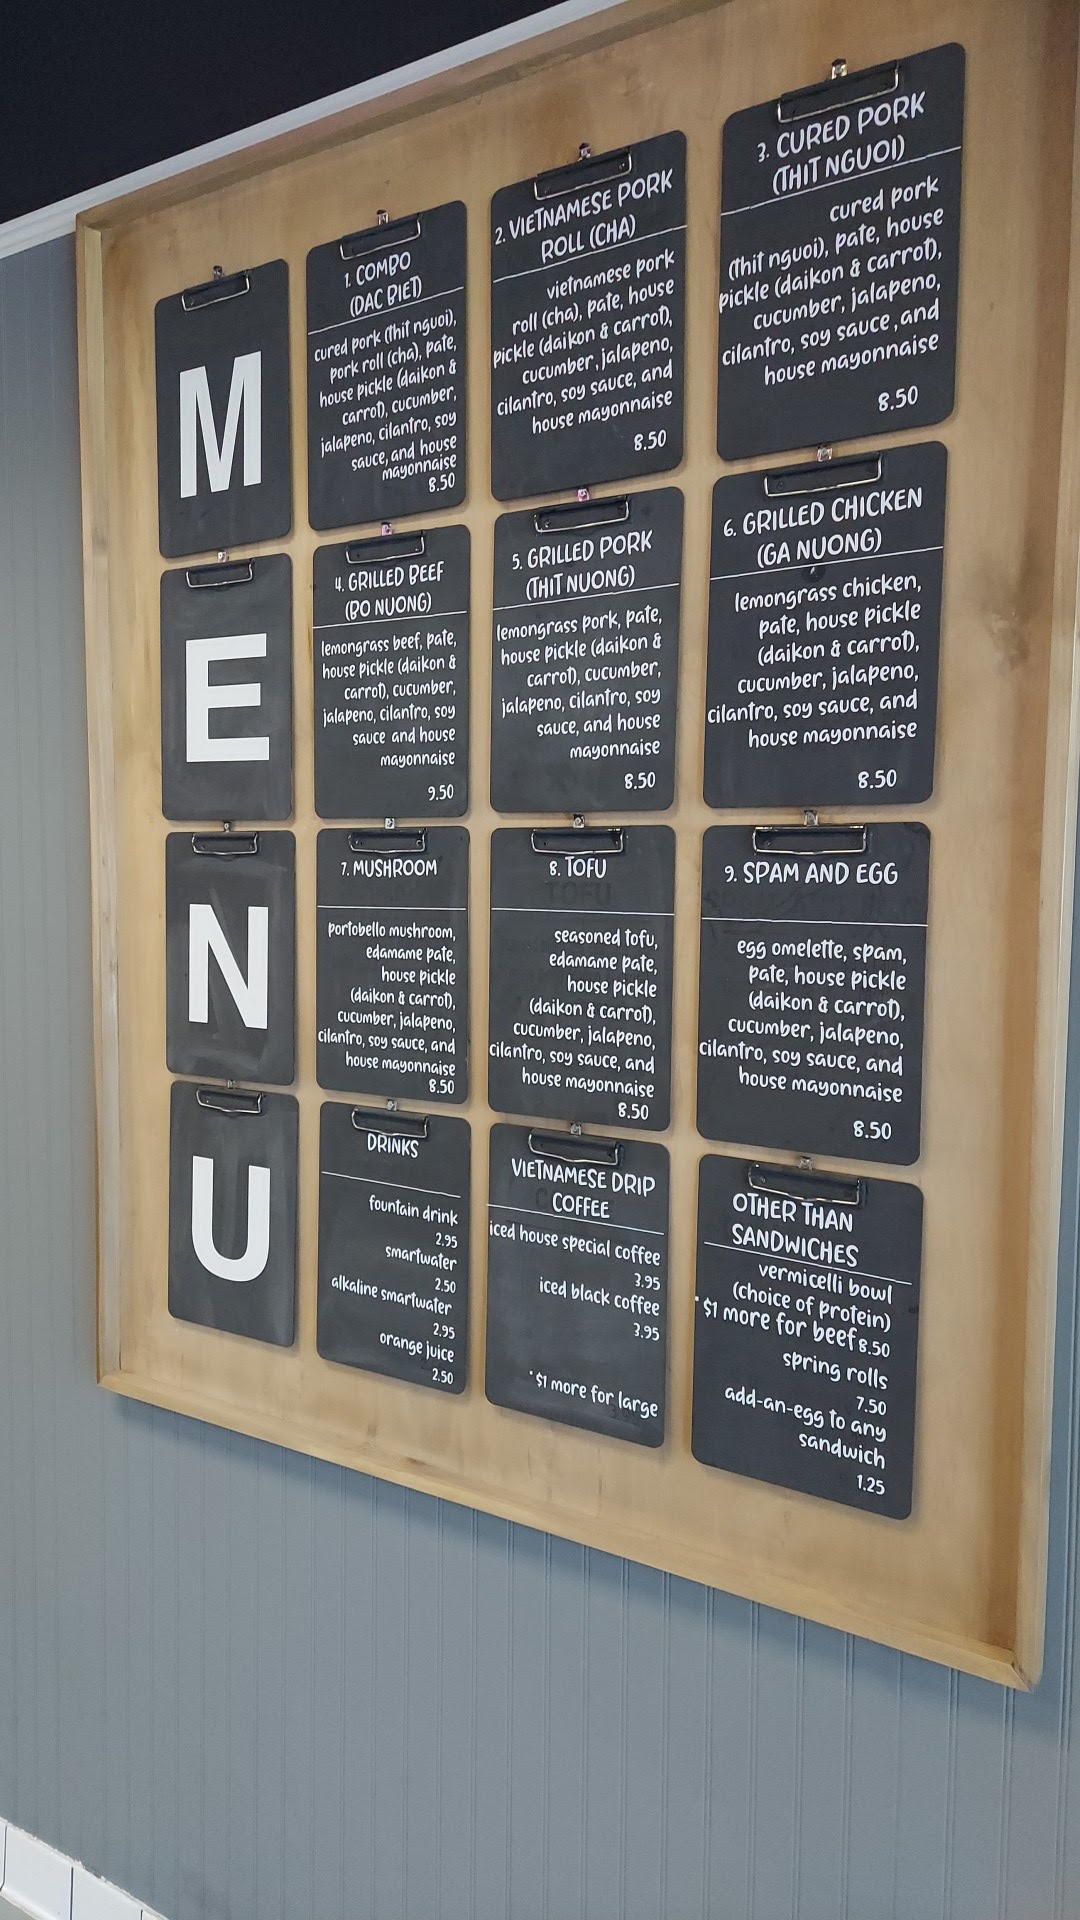 M
E
N
U
1. COMBO
(DAC BIET)
cured pork (thit nguoi),
pork roll (cha), pate,
house pickle (daikon &
carrot), cucumber,
jalapeno, cilantro, soy
sauce, and house
mayonnaise
8.50
2. VIETNAMESE PORK
ROLL (CHA)
vietnamese pork
roll (cha), pate, house
pickle (daikon & carrot),
cucumber, jalapeno,
cilantro, soy sauce, and
house mayonnaise
8.50
3. CURED PORK
(THIT NGUOI)
cured pork
(thit nguoi), pate, house
pickle (daikon & carrot),
cucumber, jalapeno,
cilantro, soy sauce, and
house mayonnaise
8.50
4. GRILLED BEEF
(BO NUONG)
lemongrass beef, pate,
house pickle (daikon &
carrot), cucumber,
jalapeno, cilantro, soy
sauce and house
mayonnaise
9.50
5. GRILLED PORK
(THIT NUONG)
lemongrass pork, pate,
house pickle (daikon &
carrot), cucumber,
jalapeno, cilantro, soy
sauce, and house
mayonnaise
8.50
6. GRILLED CHICKEN
(GA NUONG)
lemongrass chicken,
pate, house pickle
(daikon & carrot),
cucumber, jalapeno,
cilantro, soy sauce, and
house mayonnaise
8.50
7. MUSHROOM
portobello mushroom,
edamame pate,
house pickle
(daikon & carrot),
cucumber, jalapeno,
cilantro, soy sauce, and
house mayonnaise
8.50
8. TOFU
seasoned tofu,
edamame pate,
house pickle
(daikon & carrot),
cucumber, jalapeno,
cilantro, soy sauce, and
house mayonnaise
8.50
9. SPAM AND EGG
egg omelette, spam,
pate, house pickle
(daikon & carrot),
cucumber, jalapeno,
cilantro, soy sauce, and
house mayonnaise
8.50
DRINKS
fountain drink
2.95
smartwater
2.50
alkaline smartwater
2.95
orange juice
2.50
VIETNAMESE DRIP
COFFEE
iced house special coffee
3.95
iced black coffee
3.95
*$1 more for large
OTHER THAN
SANDWICHES
vermicelli bowl
(choice of protein)
*$1 more for beef 8.50
spring rolls
7.50
add-an-egg to any
sandwich
1.25